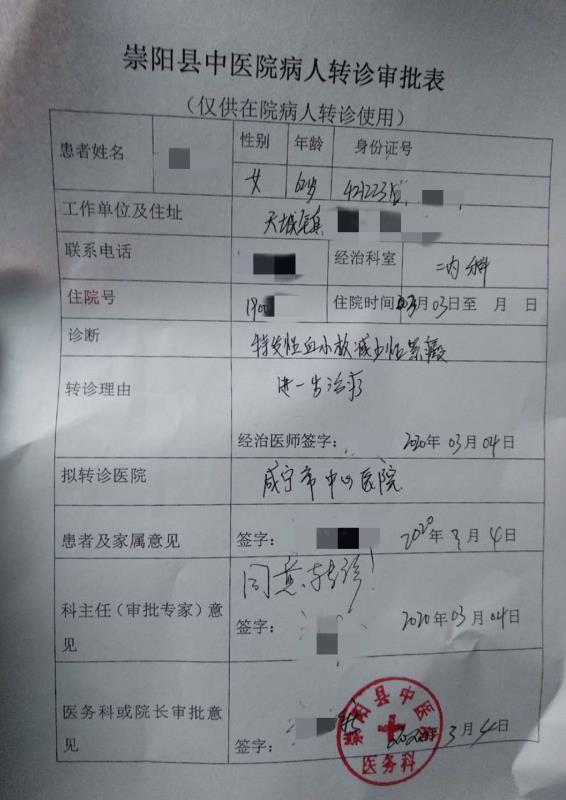 崇阳县中医院病人转诊审批表
（仅供在院病人转诊使用）
患者姓名
性别 年龄 身份证号
女 62岁 421223
工作单位及住址 天城镇
联系电话 经治科室 二内科
住院号 190 住院时间 月03日至 月 日
诊断 特发性血小板减少性紫癜
转诊理由 进一步治疗
经治医师签字： 2020年03月04日
拟转诊医院 咸宁市中心医院
患者及家属意见 签字： 2020年3月4日
同意转诊！
科主任（审批专家）意见
签字： 2020年03月04日
医务科或院长审批意见
签字： 2020年3月4日
崇阳县中医院
医务科